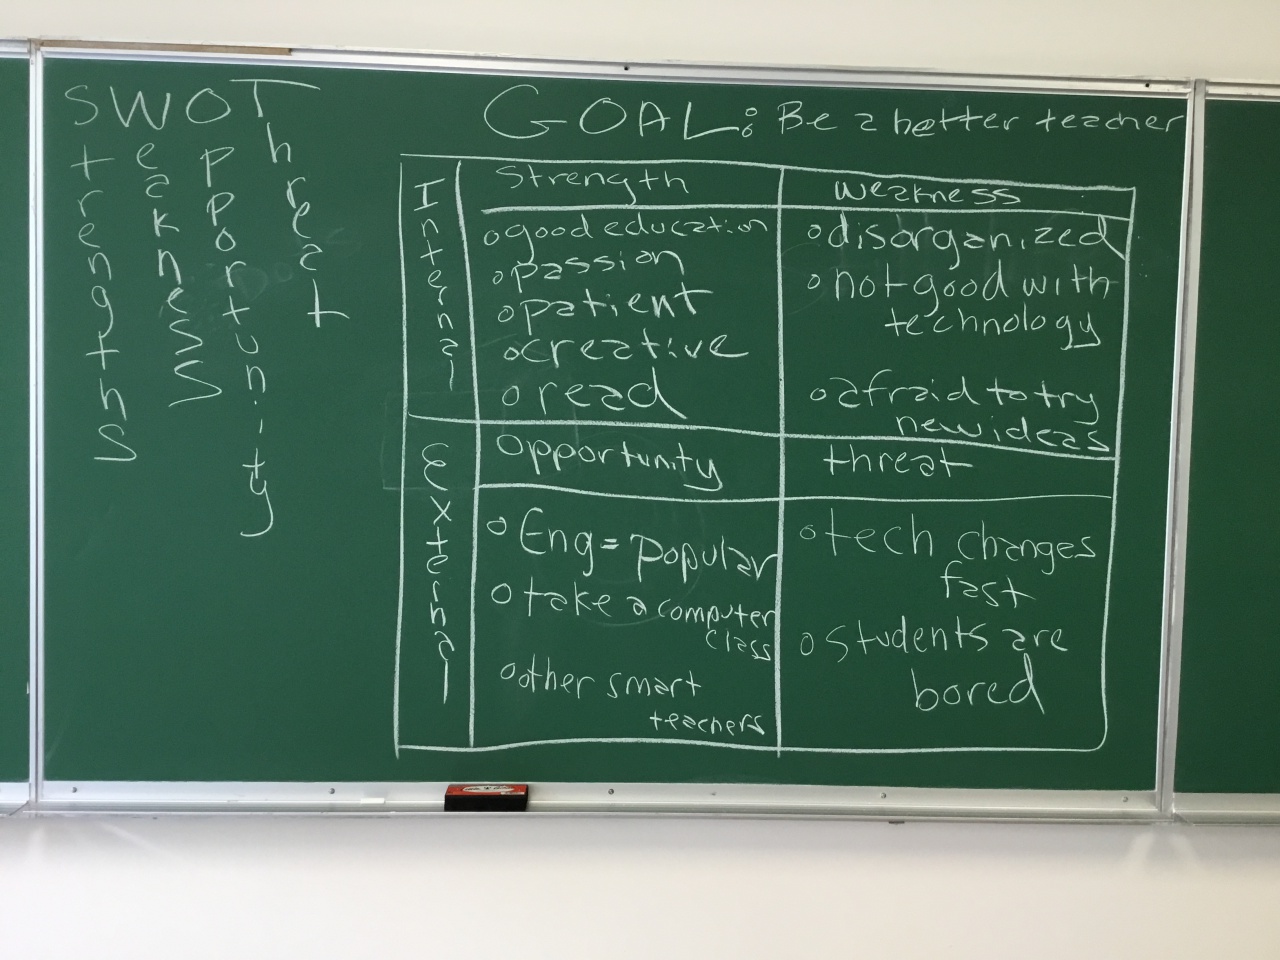 SWOT
Strengths
Weakness
Opportunity
Threat
GOAL: Be a better teacher
Internal
Strength
good education
passion
patient
creative
read
weakness
disorganized
not good with
technology
afraid to try
new ideas
External
Opportunity
Eng = popular
take a computer
class
other smart
teachers
threat
tech changes
fast
students are
bored